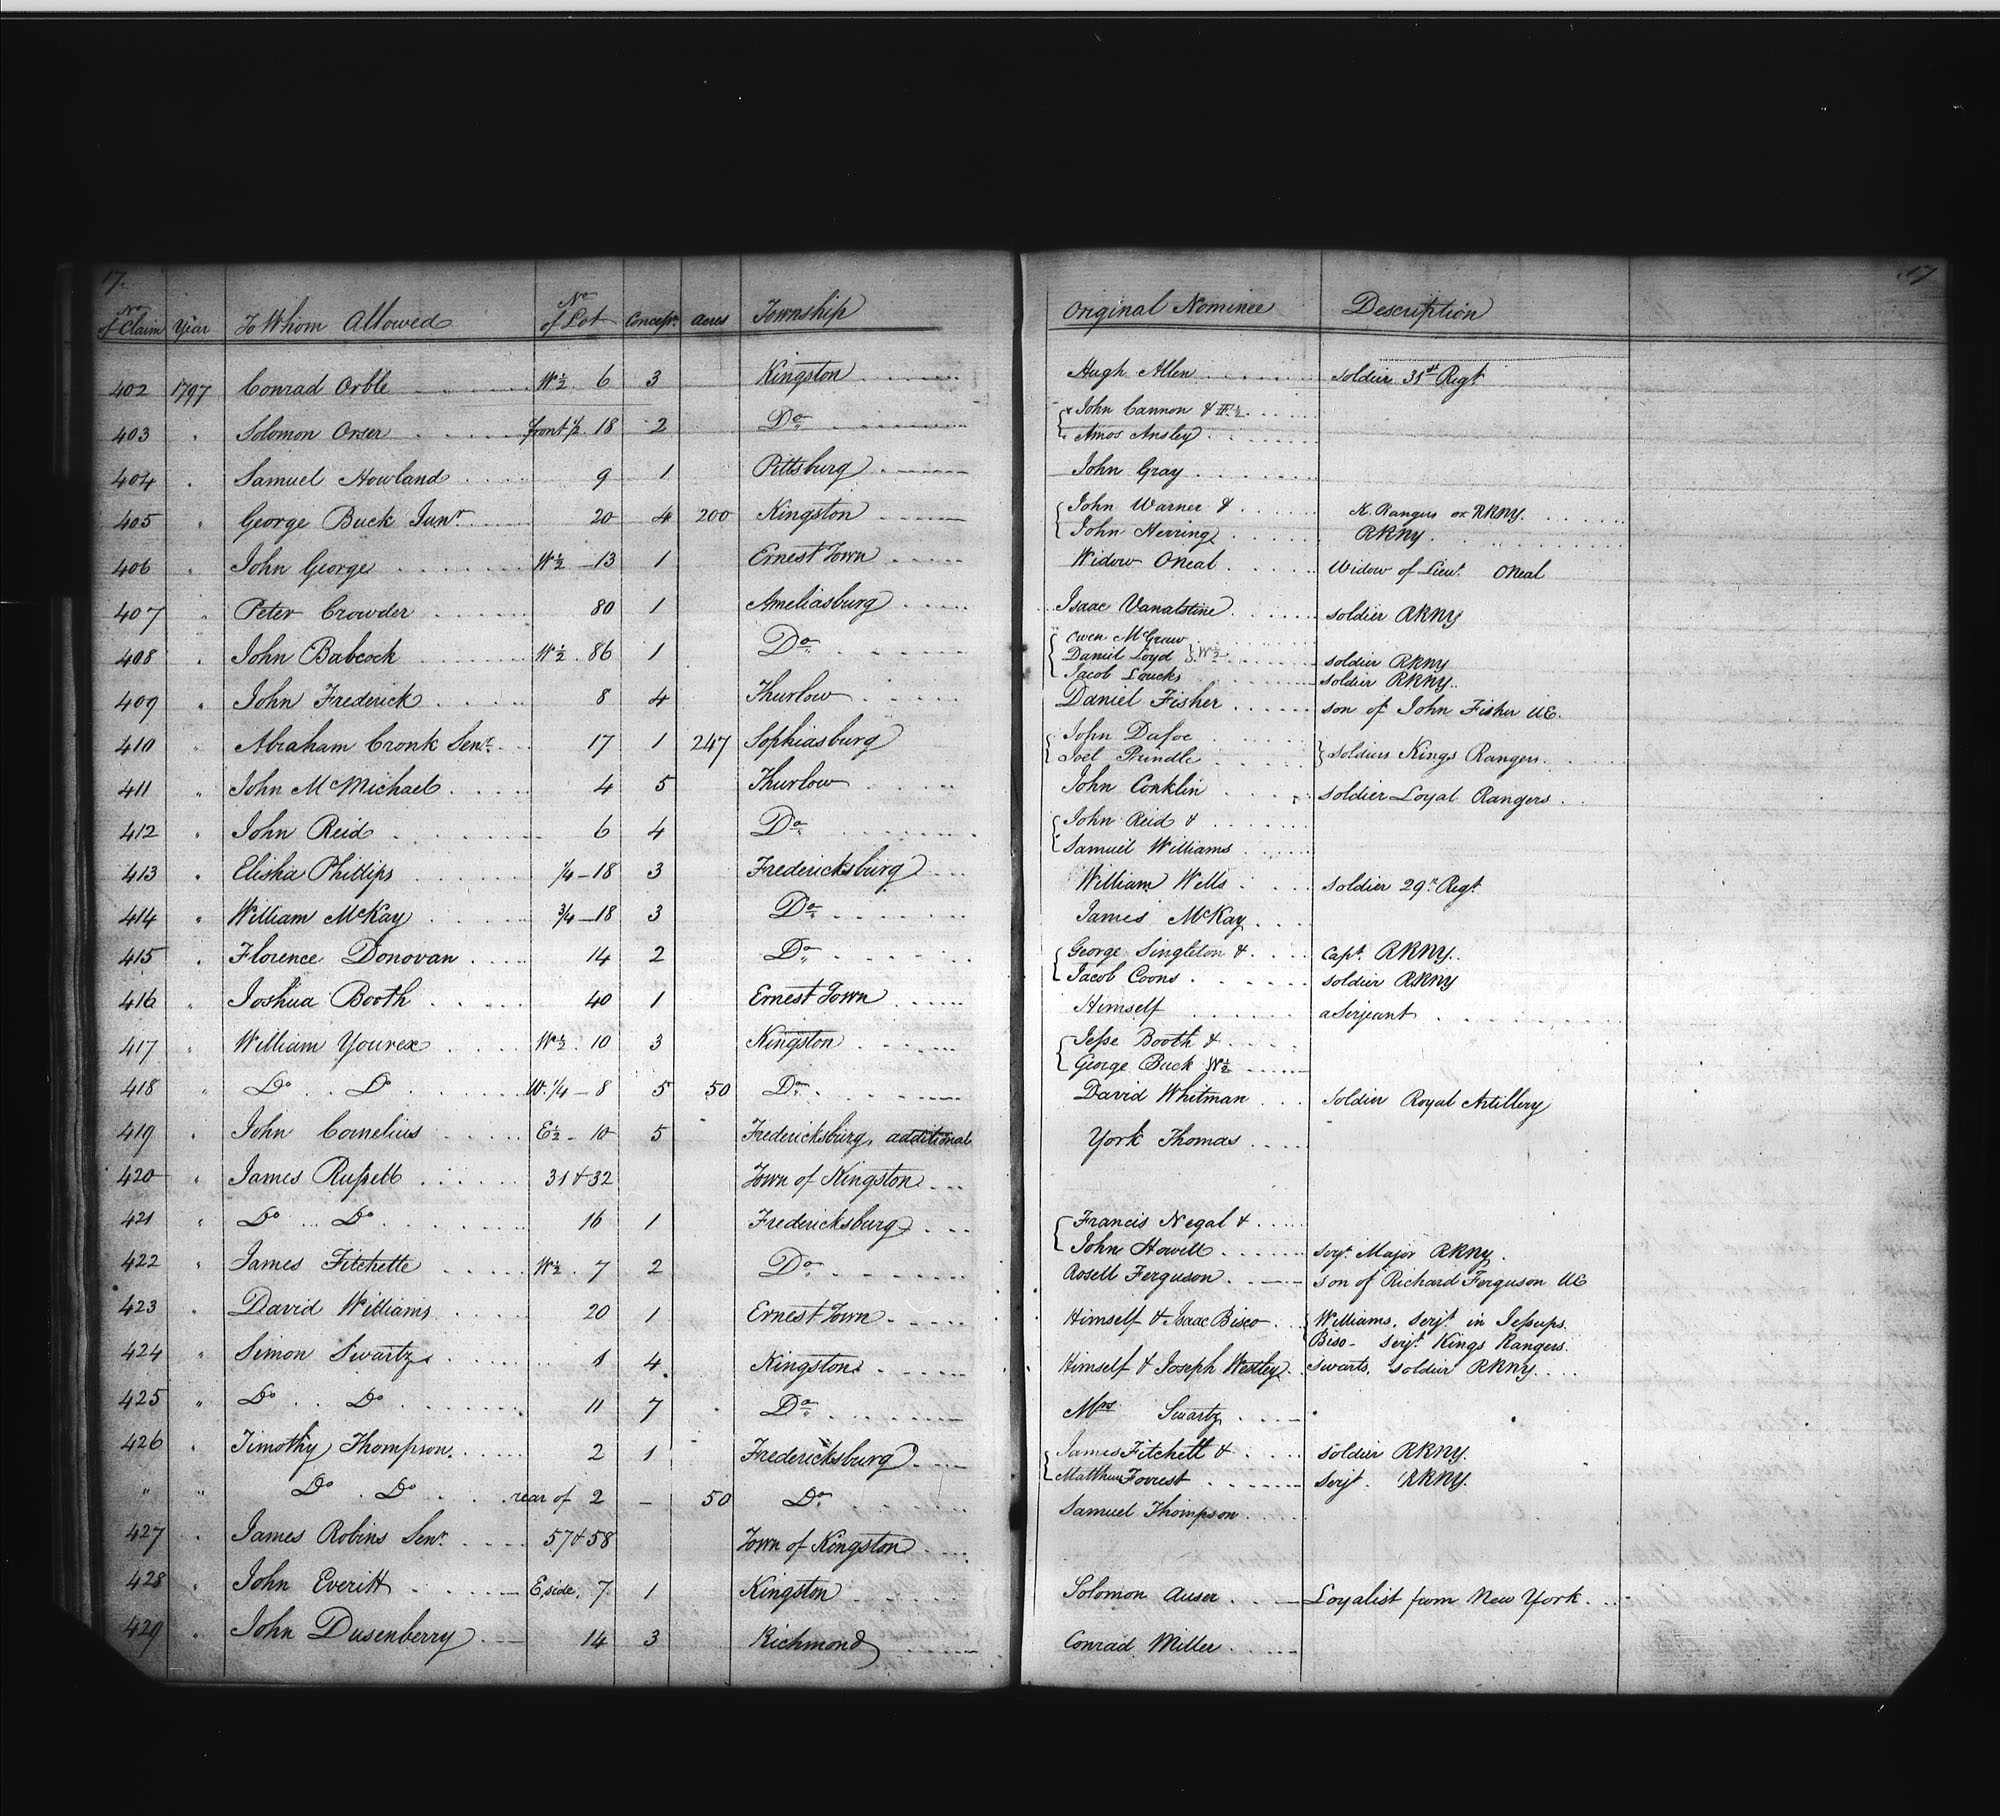 17. 17
No of Claim Year To Whom Allowed No of Lot Concessn. Acres Township Original Nominee Description
402 1797 Conrad Orble W½ 6 3 Kingston Hugh Allen Soldier 31st Regt
403 " Solomon Orser front ½ 18 2 Do John Cannon & F½
Amos Ansley
404 " Samuel Howland 9 1 Pittsburg John Gray
405 " George Buck Junr 20 4 200 Kingston John Warner & K. Rangers or RRNY.
John Herring RRNY.
406 " John George W½ 13 1 Ernest Town Widow ONeal Widow of Lieut. ONeal
407 " Peter Crowder 80 1 Ameliasburg Isaac Vanalstine Soldier RRNY
408 " John Babcock W½ 86 1 Do Owen McGraw
Daniel Loyd } W½ Soldier RRNY
Jacob Loucks Soldier RRNY.
409 " John Frederick 8 4 Thurlow Daniel Fisher son of John Fisher UE.
410 " Abraham Cronk Senr. 17 1 247 Sophiasburg John Dafoe
Joel Prindle } Soldiers Kings Rangers.
411 " John McMichael 4 5 Thurlow John Conklin Soldier Loyal Rangers
412 " John Reid 6 4 Do John Reid &
Samuel Williams
413 " Elisha Phillips ¼ - 18 3 Fredericksburg William Wells Soldier 29th Regt
414 " William McKay ¾ - 18 3 Do James McKay
415 " Florence Donovan 14 2 Do George Singleton & Capt. RRNY.
Jacob Coons Soldier RRNY
416 " Joshua Booth 40 1 Ernest Town Himself a Serjeant
417 " William Yourex W½ 10 3 Kingston Jesse Booth &
George Buck W½
418 " Do Do W. ¼ - 8 5 50 Do David Whitman Soldier Royal Artillery
419 " John Cornelius E½ - 10 5 Fredericksburg, additional York Thomas
420 " James Russell 31 & 32 Town of Kingston
421 " Do Do 16 1 Fredericksburg Francis Negal &
John Howell Serjt. Major RRNY.
422 " James Fitchette W½ 7 2 Do Rosell Ferguson son of Richard Ferguson UE
423 " David Williams 20 1 Ernest Town Himself & Isaac Bisco Williams, Serjt. in Jessups.
Biso - Serjt. Kings Rangers.
424 " Simon Swartz 1 4 Kingston Himself & Joseph Westley Swarts, Soldier RRNY.
425 " Do Do 11 7 Do Mrs Swartz
426 " Timothy Thompson 2 1 Fredericksburg James Fitchett & Soldier RRNY.
Matthew Forrest Serjt. RRNY.
" " Do Do rear of 2 - 50 Do Samuel Thompson
427 " James Robins Senr. 57 & 58 Town of Kingston
428 " John Everitt E, side, 7 1 Kingston Solomon Auser Loyalist from New York
429 " John Dusenberry 14 3 Richmond Conrad Miller